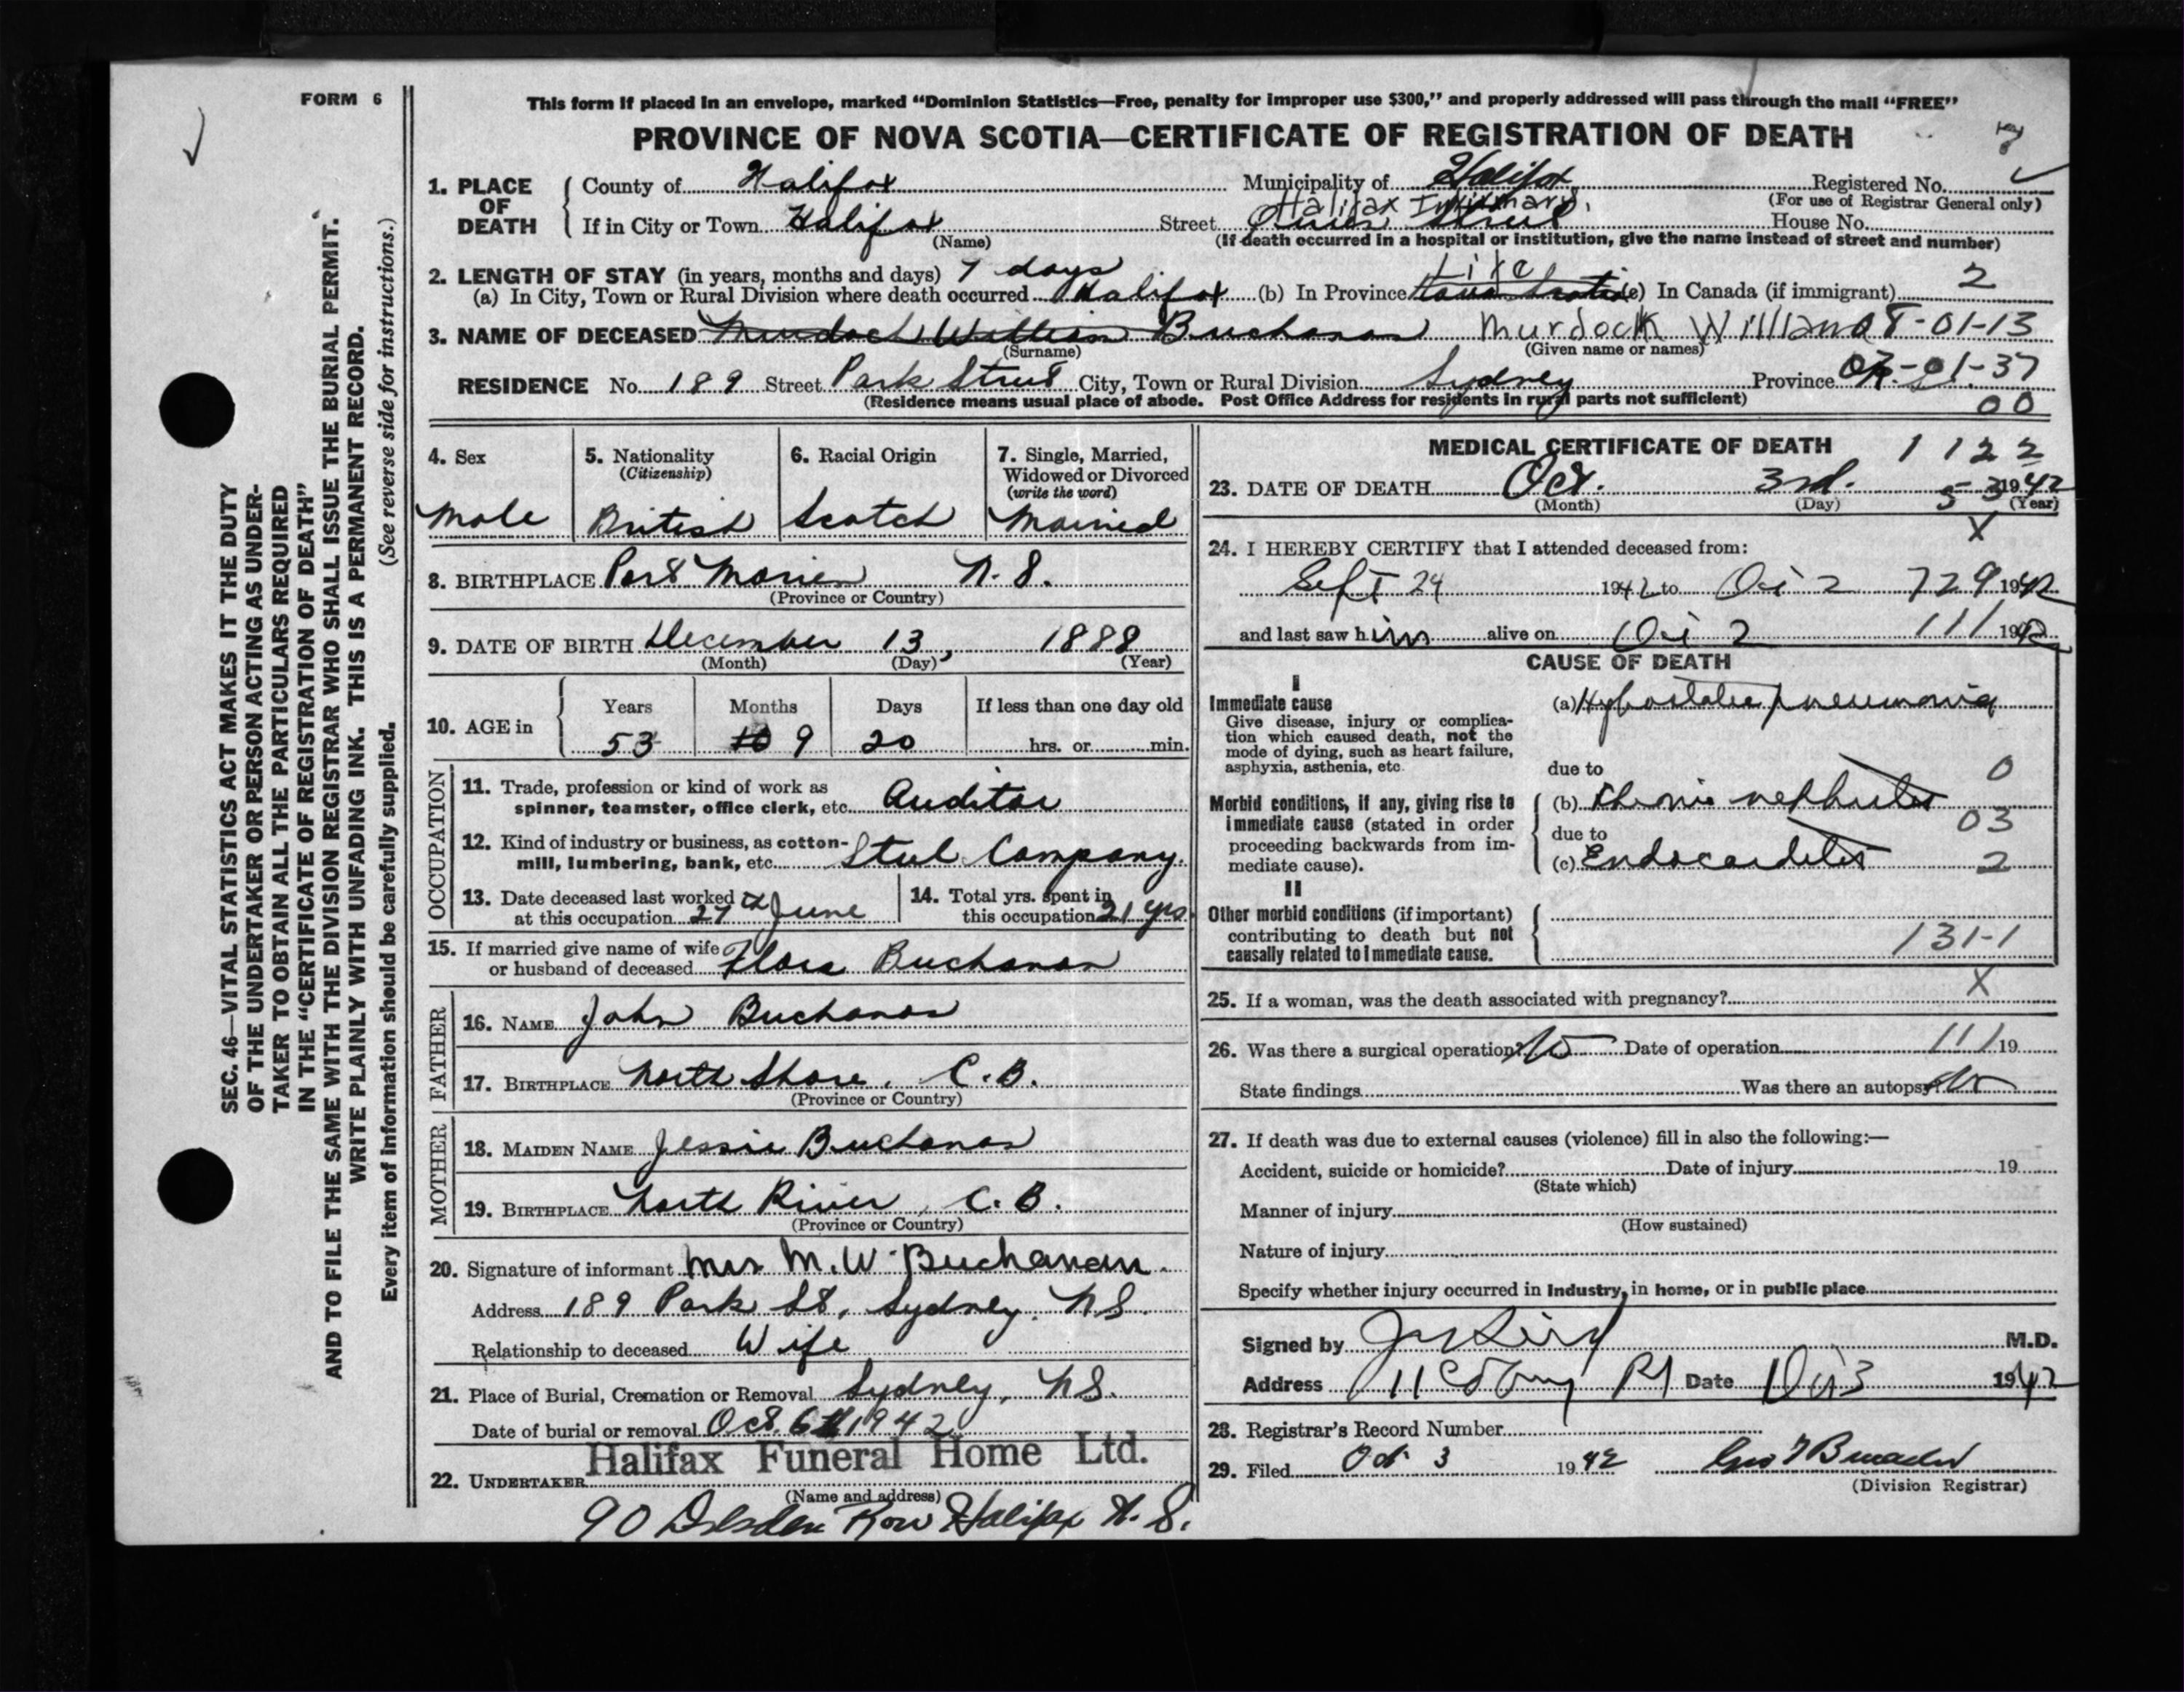 FORM 6
This form if placed in an envelope, marked “Dominion Statistics—Free, penalty for improper use $300,” and properly addressed will pass through the mail “FREE”
PROVINCE OF NOVA SCOTIA—CERTIFICATE OF REGISTRATION OF DEATH
7
SEC. 46—VITAL STATISTICS ACT MAKES IT THE DUTY
OF THE UNDERTAKER OR PERSON ACTING AS UNDER-
TAKER TO OBTAIN ALL THE PARTICULARS REQUIRED
IN THE “CERTIFICATE OF REGISTRATION OF DEATH”
AND TO FILE THE SAME WITH THE DIVISION REGISTRAR WHO SHALL ISSUE THE BURIAL PERMIT.
WRITE PLAINLY WITH UNFADING INK. THIS IS A PERMANENT RECORD.
Every item of information should be carefully supplied. (See reverse side for instructions.)
1. PLACE OF DEATH
County of Halifax Municipality of Halifax Registered No.
(For use of Registrar General only)
Halifax Infirmary.
If in City or Town Halifax Street Queen Street House No.
(Name) (If death occurred in a hospital or institution, give the name instead of street and number)
2. LENGTH OF STAY (in years, months and days) 7 days Life 2
(a) In City, Town or Rural Division where death occurred Halifax (b) In Province Nova Scotia (c) In Canada (if immigrant)
3. NAME OF DECEASED Murdoch William Buchanan Murdock William 08-01-13
(Surname) (Given name or names)
RESIDENCE No. 189 Street Park Street City, Town or Rural Division Sydney Province 03-01-37
(Residence means usual place of abode. Post Office Address for residents in rural parts not sufficient) 00
4. Sex
Male
5. Nationality
(Citizenship)
British
6. Racial Origin
Scotch
7. Single, Married,
Widowed or Divorced
(write the word)
Married
8. BIRTHPLACE Port Morien N.S.
(Province or Country)
9. DATE OF BIRTH December 13, 1888
(Month) (Day) (Year)
10. AGE in
Years Months Days If less than one day old
53 10 9 20 hrs. or min.
OCCUPATION
11. Trade, profession or kind of work as
spinner, teamster, office clerk, etc. Auditor
12. Kind of industry or business, as cotton-
mill, lumbering, bank, etc. Steel Company.
13. Date deceased last worked
at this occupation 27th June
14. Total yrs. spent in
this occupation 21 yrs.
15. If married give name of wife
or husband of deceased Flora Buchanan
FATHER
16. NAME John Buchanan
17. BIRTHPLACE North Shore, C.B.
(Province or Country)
MOTHER
18. MAIDEN NAME Jessie Buchanan
19. BIRTHPLACE North River, C.B.
(Province or Country)
20. Signature of informant Mrs M. W. Buchanan.
Address 189 Park St, Sydney. N.S.
Relationship to deceased Wife
21. Place of Burial, Cremation or Removal Sydney, N.S.
Date of burial or removal Oct. 6th 1942
Halifax Funeral Home Ltd.
22. UNDERTAKER
(Name and address)
90 Dresden Row Halifax N.S.
MEDICAL CERTIFICATE OF DEATH 1 1 2 2
23. DATE OF DEATH Oct. 3rd. 5-3 1942
(Month) (Day) (Year)
X
24. I HEREBY CERTIFY that I attended deceased from:
Sept 24 1942 to Oct 2 729 1942
and last saw him alive on Oct 2 111 1942
CAUSE OF DEATH
I
Immediate cause
Give disease, injury or complica-
tion which caused death, not the
mode of dying, such as heart failure,
asphyxia, asthenia, etc.
(a) Hypostatic pneumonia
due to 0
Morbid conditions, if any, giving rise to
immediate cause (stated in order
proceeding backwards from im-
mediate cause).
(b) Chronic nephritis
03
due to
(c) Endocarditis 2
II
Other morbid conditions (if important)
contributing to death but not
causally related to immediate cause.
131-1
X
25. If a woman, was the death associated with pregnancy?
26. Was there a surgical operation? No Date of operation 111 19
State findings Was there an autopsy? No
27. If death was due to external causes (violence) fill in also the following:—
Accident, suicide or homicide? Date of injury 19
(State which)
Manner of injury
(How sustained)
Nature of injury
Specify whether injury occurred in Industry, in home, or in public place
Signed by M.D.
Address Date Oct 3 1942
28. Registrar's Record Number
29. Filed Oct 3 1942
(Division Registrar)